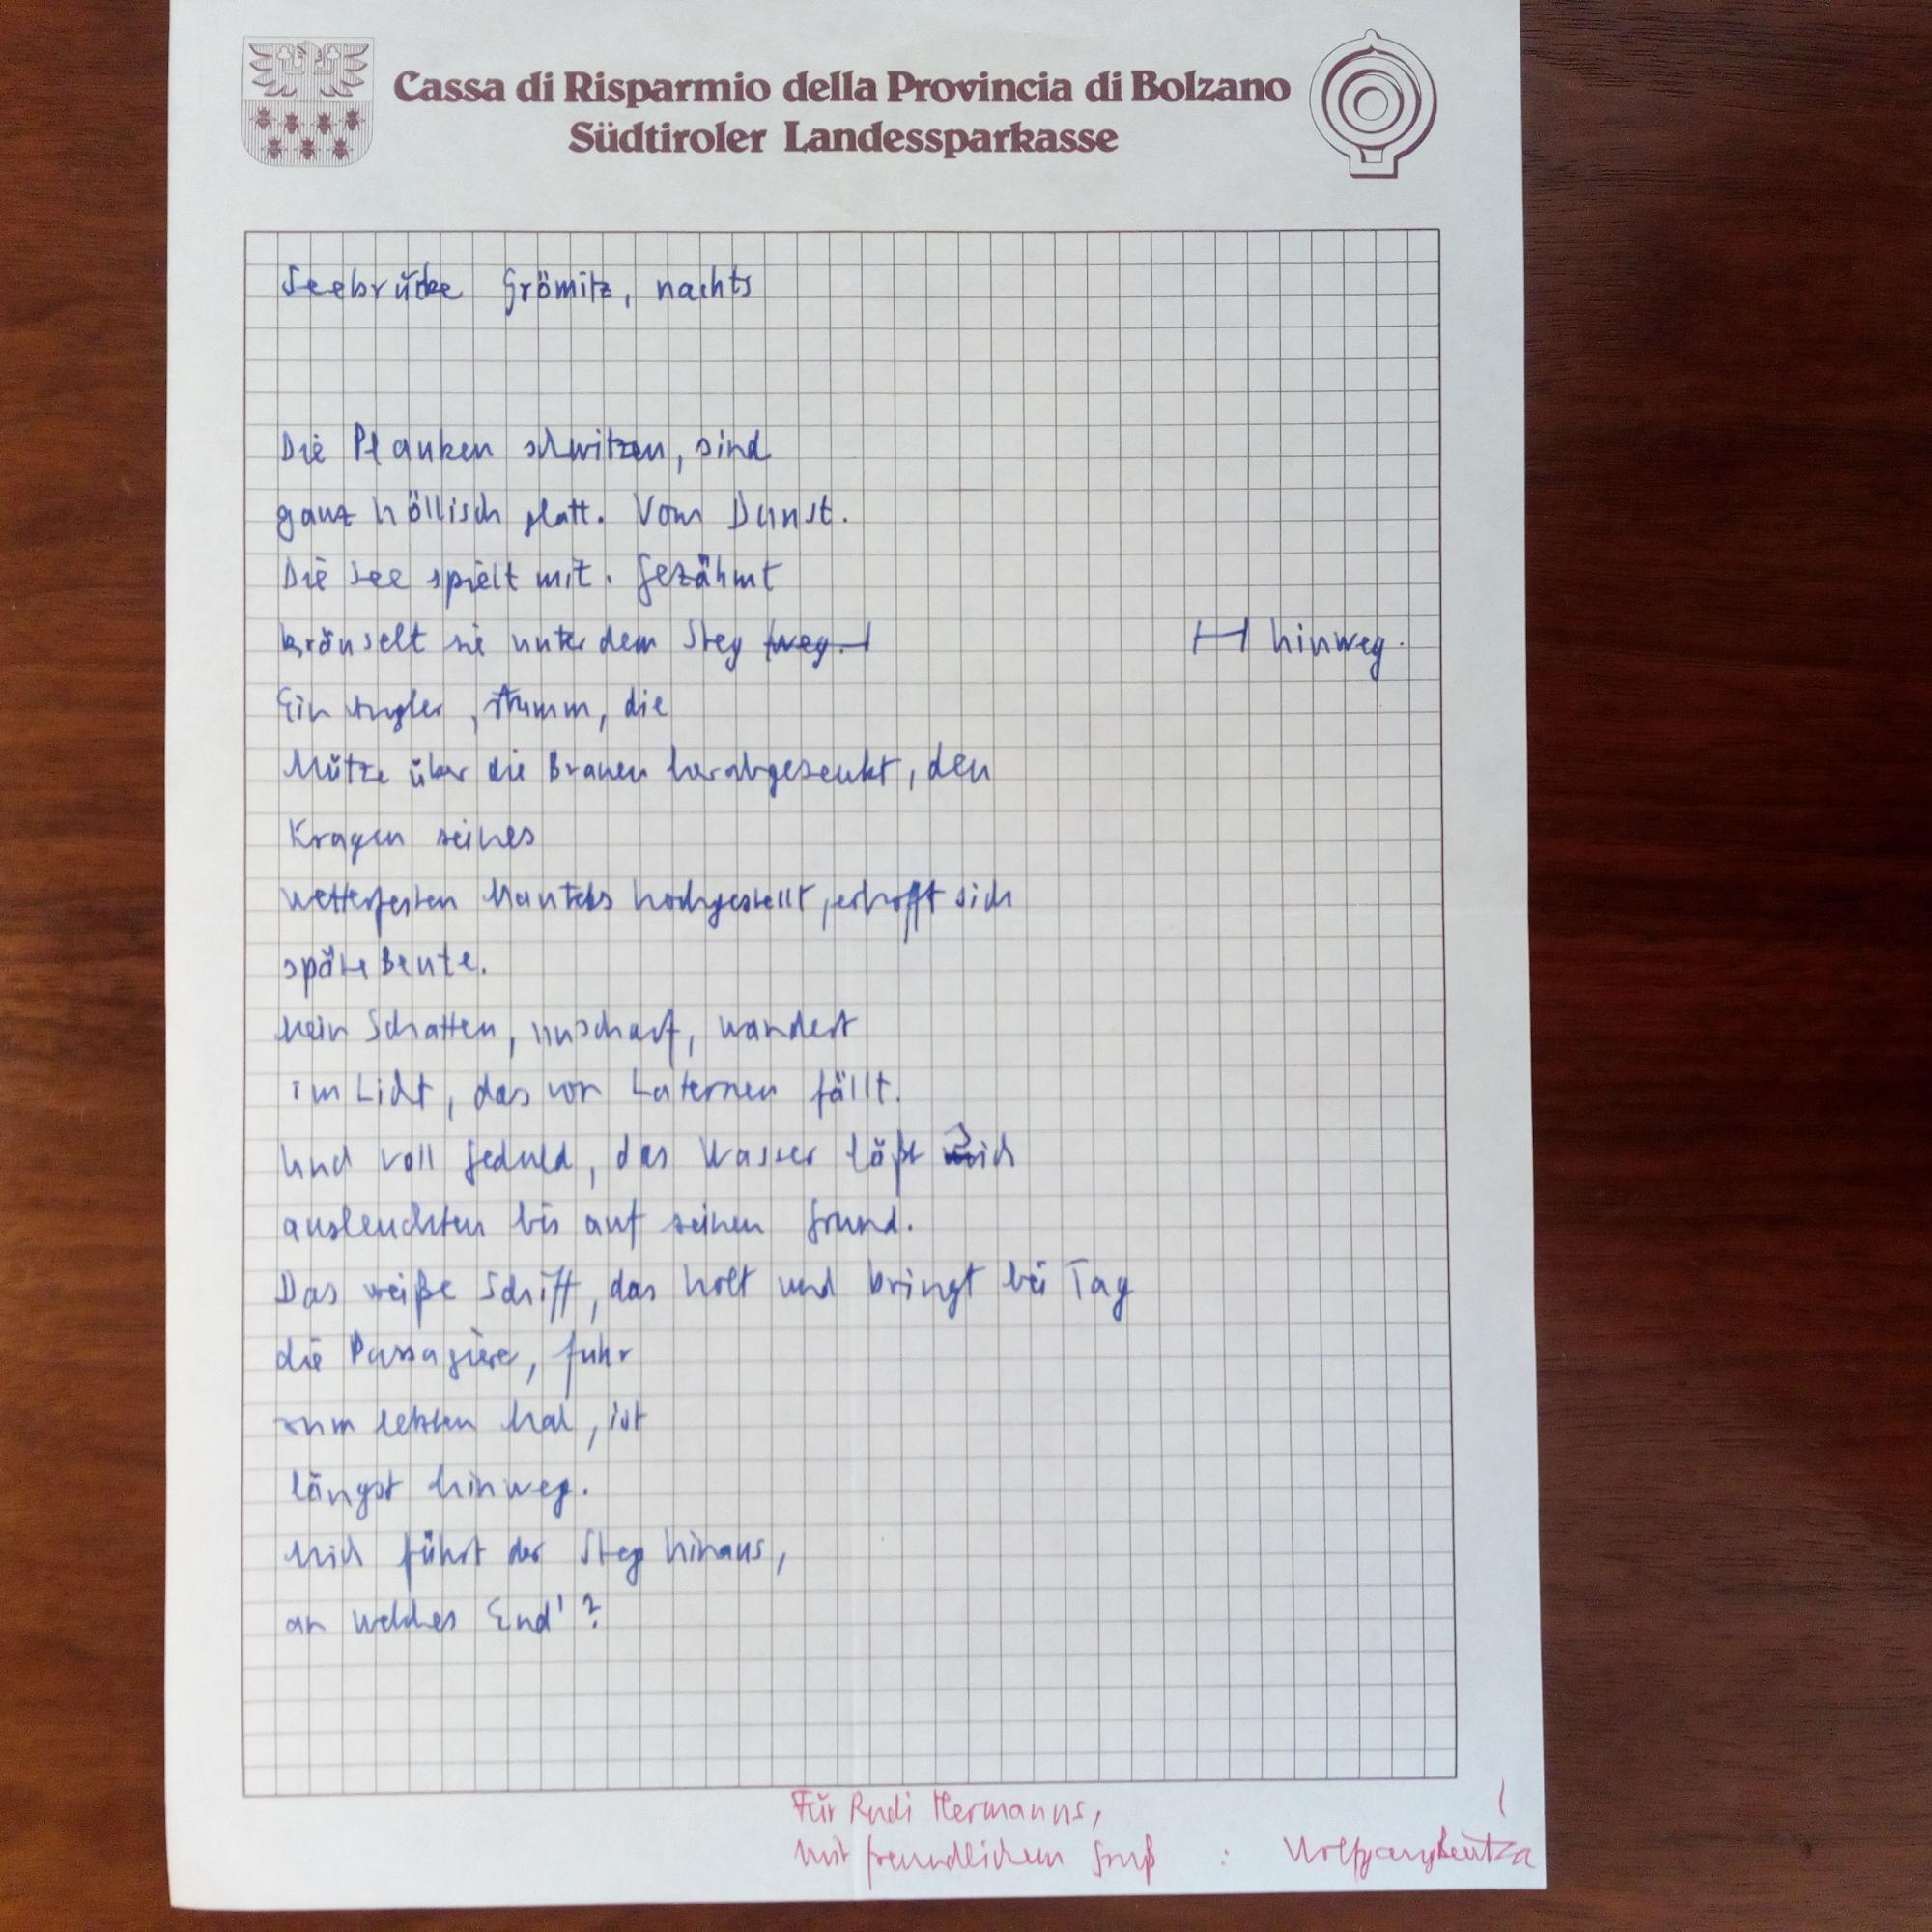 Cassa di Risparmio della Provincia di Bolzano
Südtiroler Landessparkasse
Seebrücke Grömitz, nachts
Die Planken schwitzen, sind
ganz höllisch glatt. Vom Dunst.
Die See spielt mit. Gezähmt
kräuselt sie unter dem Steg weg. hinweg.
Ein Angler, stumm, die
Mütze über die Brauen herabgesenkt, den
Kragen seines
wetterfesten Mantels hochgestellt, erhofft sich
späte Beute.
Mein Schatten, unscharf, wandert
im Licht, das von Laternen fällt.
Und voll Geduld, das Wasser läßt sich
ausleuchten bis auf seinen Grund.
Das weiße Schiff, das holt und bringt bei Tag
die Passagiere, fuhr
zum letzten Mal, ist
längst hinweg.
Mich führt der Steg hinaus,
an welches End'?
Für Rudi Hermanns,
mit freundlichem Gruß : Wolfgang